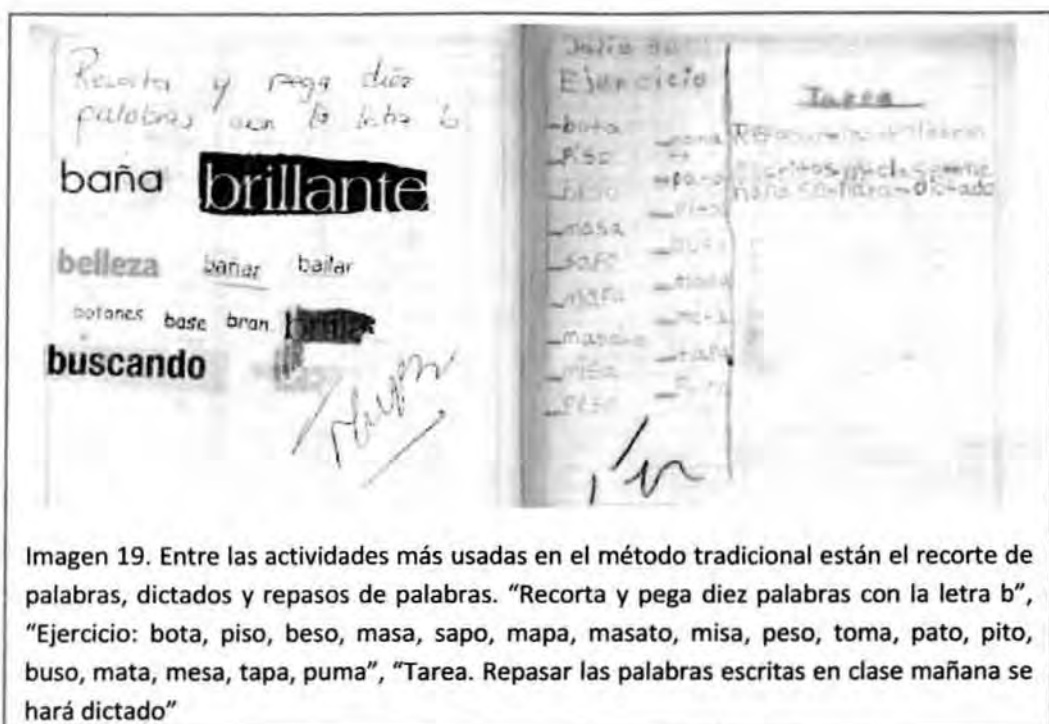 Recorta y pega diez
palabras con la letra b.
baña brillante
belleza bañar bailar
botones base bran
buscando
Julio
Ejercicio
-bota
-piso
-beso
-masa
-sapo
-mapa
-masato
-misa
-peso
-pato
-pito
-buso
-mata
-mesa
-tapa
-puma
Tarea
Repasar las palabras
escritas en clase
mañana se hara dictado
Imagen 19. Entre las actividades más usadas en el método tradicional están el recorte de
palabras, dictados y repasos de palabras. “Recorta y pega diez palabras con la letra b”,
“Ejercicio: bota, piso, beso, masa, sapo, mapa, masato, misa, peso, toma, pato, pito,
buso, mata, mesa, tapa, puma”, “Tarea. Repasar las palabras escritas en clase mañana se
hará dictado”